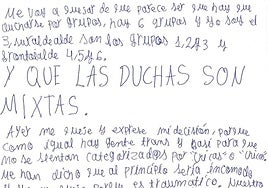 Me voy a quejar de que parece ser que hay que
ducharse por grupos, hay 6 grupos y yo soy el
3, son los grupos 1, 2 y 3 y
4, 5 y 6.
Y QUE LAS DUCHAS SON
MIXTAS.
Ayer me queje y exprese mi decisión, porque
como igual hay gente trans y para que
no se sientan categorizados por
me han dicho que al principio sería incomodo
es traumático. Nuestro